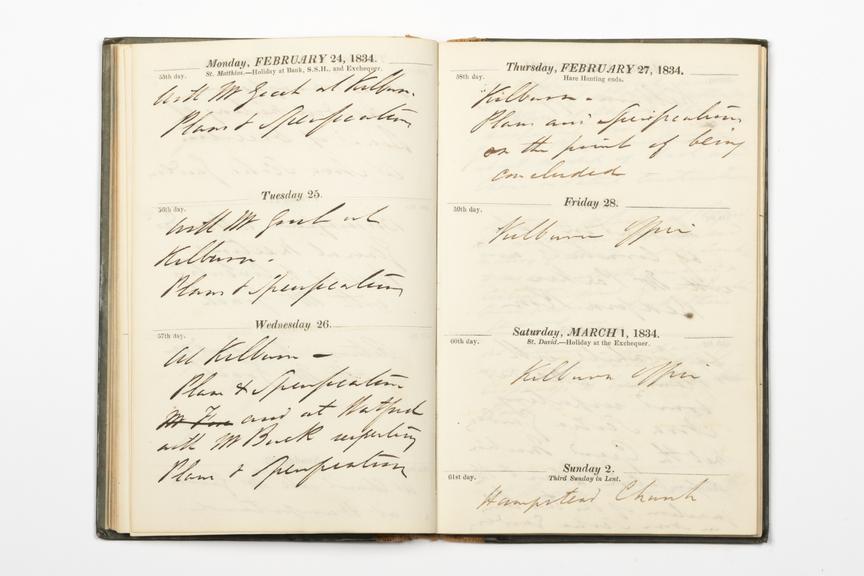 Monday, FEBRUARY 24, 1834.
55th day.
St. Matthias.—Holiday at Bank, S.S.H., and Exchequer.
with Mr at Kilburn.
Plans & Specification
Tuesday 25.
56th day.
with Mr at
Kilburn.
Plans & Specification
Wednesday 26.
57th day.
At Kilburn —
Plan & Specification
and at Watford
with Mr Buck respecting
Plans & Specification
Thursday, FEBRUARY 27, 1834.
58th day.
Hare Hunting ends.
Kilburn.
Plans and Specification
on the point of being
concluded
Friday 28.
59th day.
Kilburn Office
Saturday, MARCH 1, 1834.
60th day.
St. David.—Holiday at the Exchequer.
Kilburn Office
Sunday 2.
61st day.
Third Sunday in Lent.
Hampstead Church